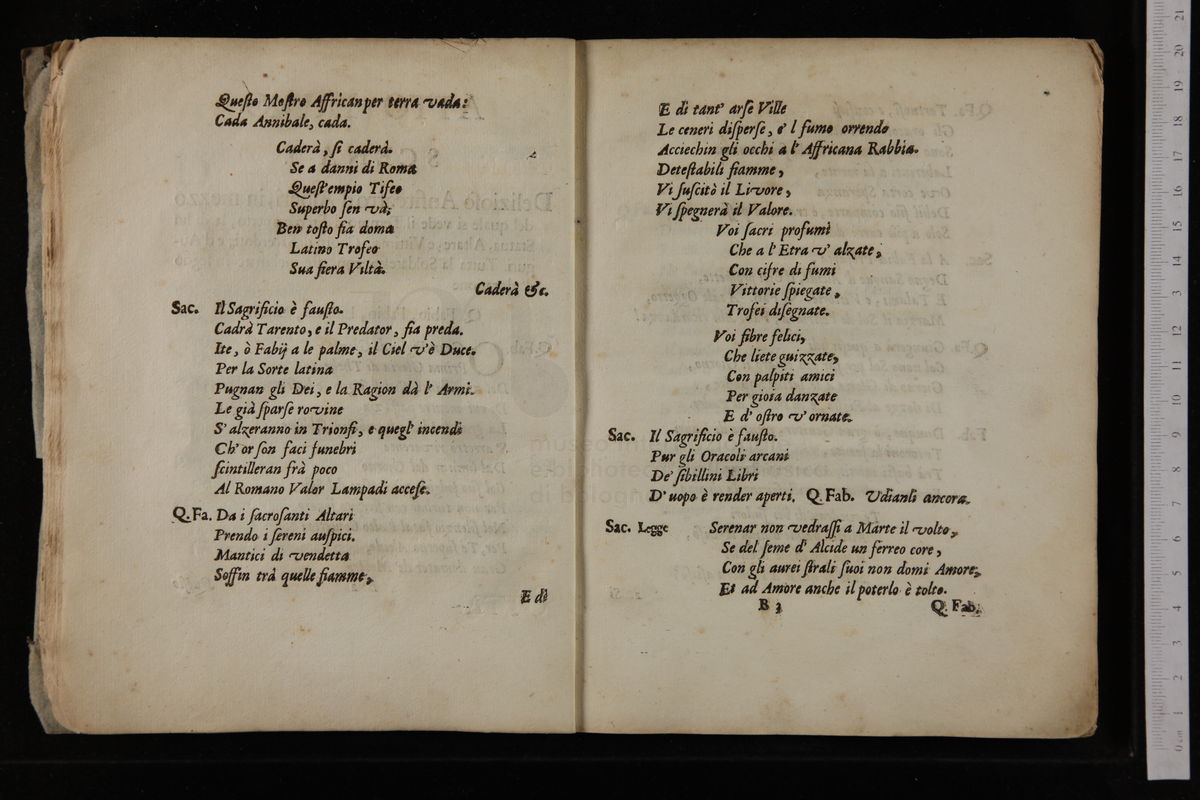 Questo Mostro Affrican per terra vada:
Cada Annibale, cada.
Caderà, si caderà.
Se a danni di Roma
Quest'empio Tifeo
Superbo sen và;
Ben tosto fia doma
Latino Trofeo
Sua fiera Viltà.
Caderà &c.
Sac. Il Sagrificio è fausto.
Cadrà Tarento, e il Predator, fia preda.
Ite, ò Fabij a le palme, il Ciel v'è Duce.
Per la Sorte latina
Pugnan gli Dei, e la Ragion dà l' Armi.
Le già sparse rovine
S' alzeranno in Trionfi, e quegl' incendi
Ch' or son faci funebri
scintilleran frà poco
Al Romano Valor Lampadi accese.
Q.Fa. Da i sacrosanti Altari
Prendo i sereni auspici.
Mantici di vendetta
Soffin trà quelle fiamme,
E di
E di tant' arse Ville
Le ceneri disperse, e' l fumo orrendo
Acciechin gli occhi a l' Affricana Rabbia.
Detestabili fiamme,
Vi suscitò il Livore,
Vi spegnerà il Valore.
Voi sacri profumi
Che a l' Etra v' alzate,
Con cifre di fumi
Vittorie spiegate,
Trofei disegnate.
Voi fibre felici,
Che liete guizzate,
Con palpiti amici
Per gioia danzate
E d' ostro v' ornate.
Sac. Il Sagrificio è fausto.
Pur gli Oracoli arcani
De' sibillini Libri
D' uopo è render aperti. Q.Fab. Udianli ancora.
Sac. Legge Serenar non vedrassi a Marte il volto,
Se del seme d' Alcide un ferreo core,
Con gli aurei strali suoi non domi Amore,
Et ad Amore anche il poterlo è tolto.
B 3 Q. Fab.